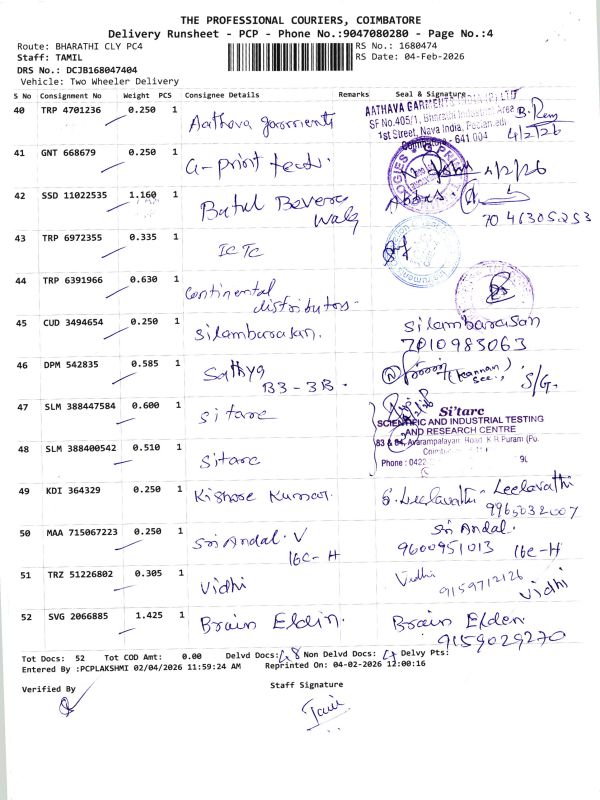 THE PROFESSIONAL COURIERS, COIMBATORE
Delivery Runsheet - PCP - Phone No.:9047080280 - Page No.:4
Route: BHARATHI CLY PC4
RS No.: 1680474
Staff: TAMIL
RS Date: 04-Feb-2026
DRS No.: DCJB168047404
Vehicle: Two Wheeler Delivery
S No Consignment No Weight PCS Consignee Details Remarks Seal & Signature
40 TRP 4701236 0.250 1 Aathava garments
AATHAVA GARMENTS
SF No.405/1, Bharathi Industrial Area
1st Street, Nava India, Peelamedu
Coimbatore - 641 004
4/2/26
41 GNT 668679 0.250 1 a-print tech.
4/2/26
42 SSD 11022535 1.160 1 Batul Bevera
walg
7046305253
43 TRP 6972355 0.335 1 ICTC
44 TRP 6391966 0.630 1 Continental
distributors.
45 CUD 3494654 0.250 1 Silambarasan. Silambarasan
7010983063
46 DPM 542835 0.585 1 Sathya
B3-3B. (Kannan) S/G.
47 SLM 388447584 0.600 1 Sitarc
Si'tarc
SCIENTIFIC AND INDUSTRIAL TESTING
AND RESEARCH CENTRE
83 & 84, Avarampalayam Road, K.R.Puram (Po.
Phone : 0422
48 SLM 388400542 0.510 1 Sitarc
49 KDI 364329 0.250 1 Kishore Kumar. S. Leelavathi - Leelavathi
9965032007
50 MAA 715067223 0.250 1 Sri Andal. V Sri Andal.
16C-H 9600951013 16C-H
51 TRZ 51226802 0.305 1 Vidhi Vidhi 9159712126 Vidhi
52 SVG 2066885 1.425 1 Brain Eldin. Brain Elden
9159029270
Tot Docs: 52 Tot COD Amt: 0.00 Delvd Docs: 48 Non Delvd Docs: 4 Delvy Pts:
Entered By :PCPLAKSHMI 02/04/2026 11:59:24 AM Reprinted On: 04-02-2026 12:00:16
Verified By
Staff Signature